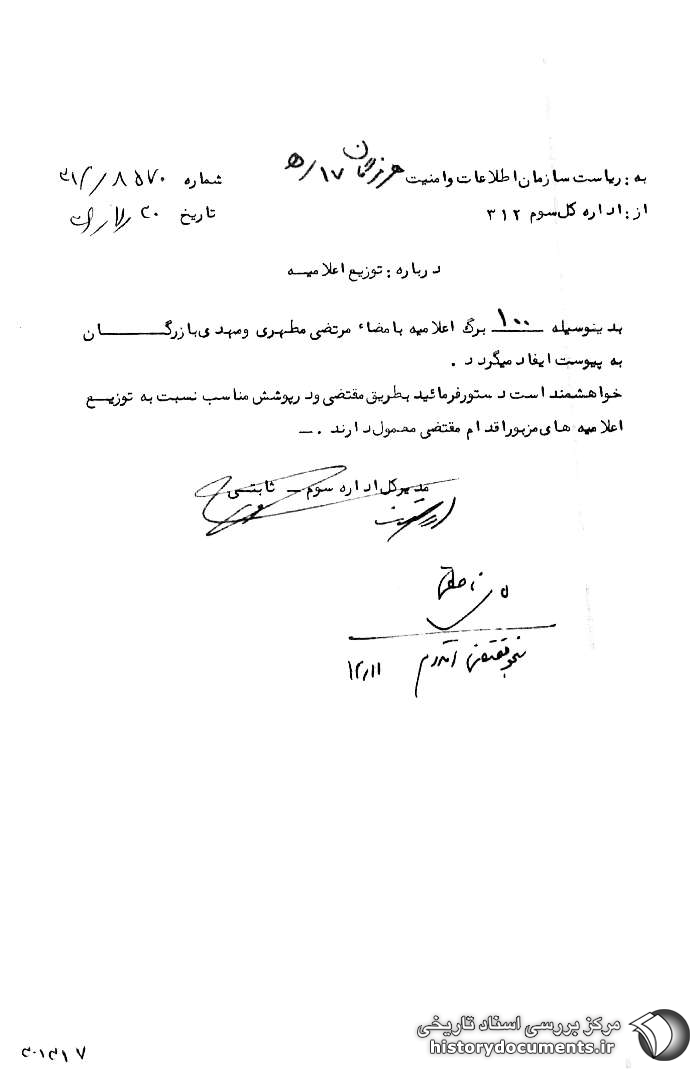 به : ریاست سازمان اطلاعات وامنیت هرمزگان ۱۷/ه
شماره ۸۵۷۰/۳۱۲
از : اداره کل سوم ۳۱۲
تاریخ
درباره : توزیع اعلامیه
بدینوسیله ۱۰۰ برگ اعلامیه بامضاء مرتضی مطهری ومهدی بازرگان
به پیوست ایفاد میگردد .
خواهشمند است دستورفرمائید بطریق مقتضی ودرپوشش مناسب نسبت به توزیع
اعلامیه های مزبوراقدام مقتضی معمول دارند .ـ
مدیرکل اداره سوم ـ ثابتی
۱۲/۱۱
مرکز بررسی اسناد تاریخی
historydocuments.ir